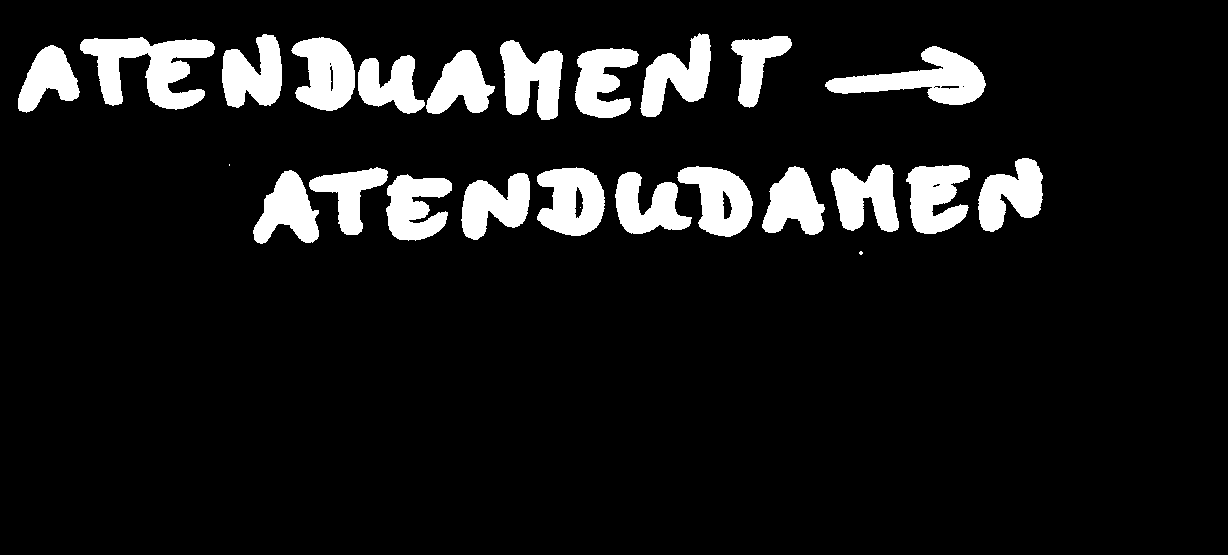 ATENDUAMENT →
ATENDUDAMEN